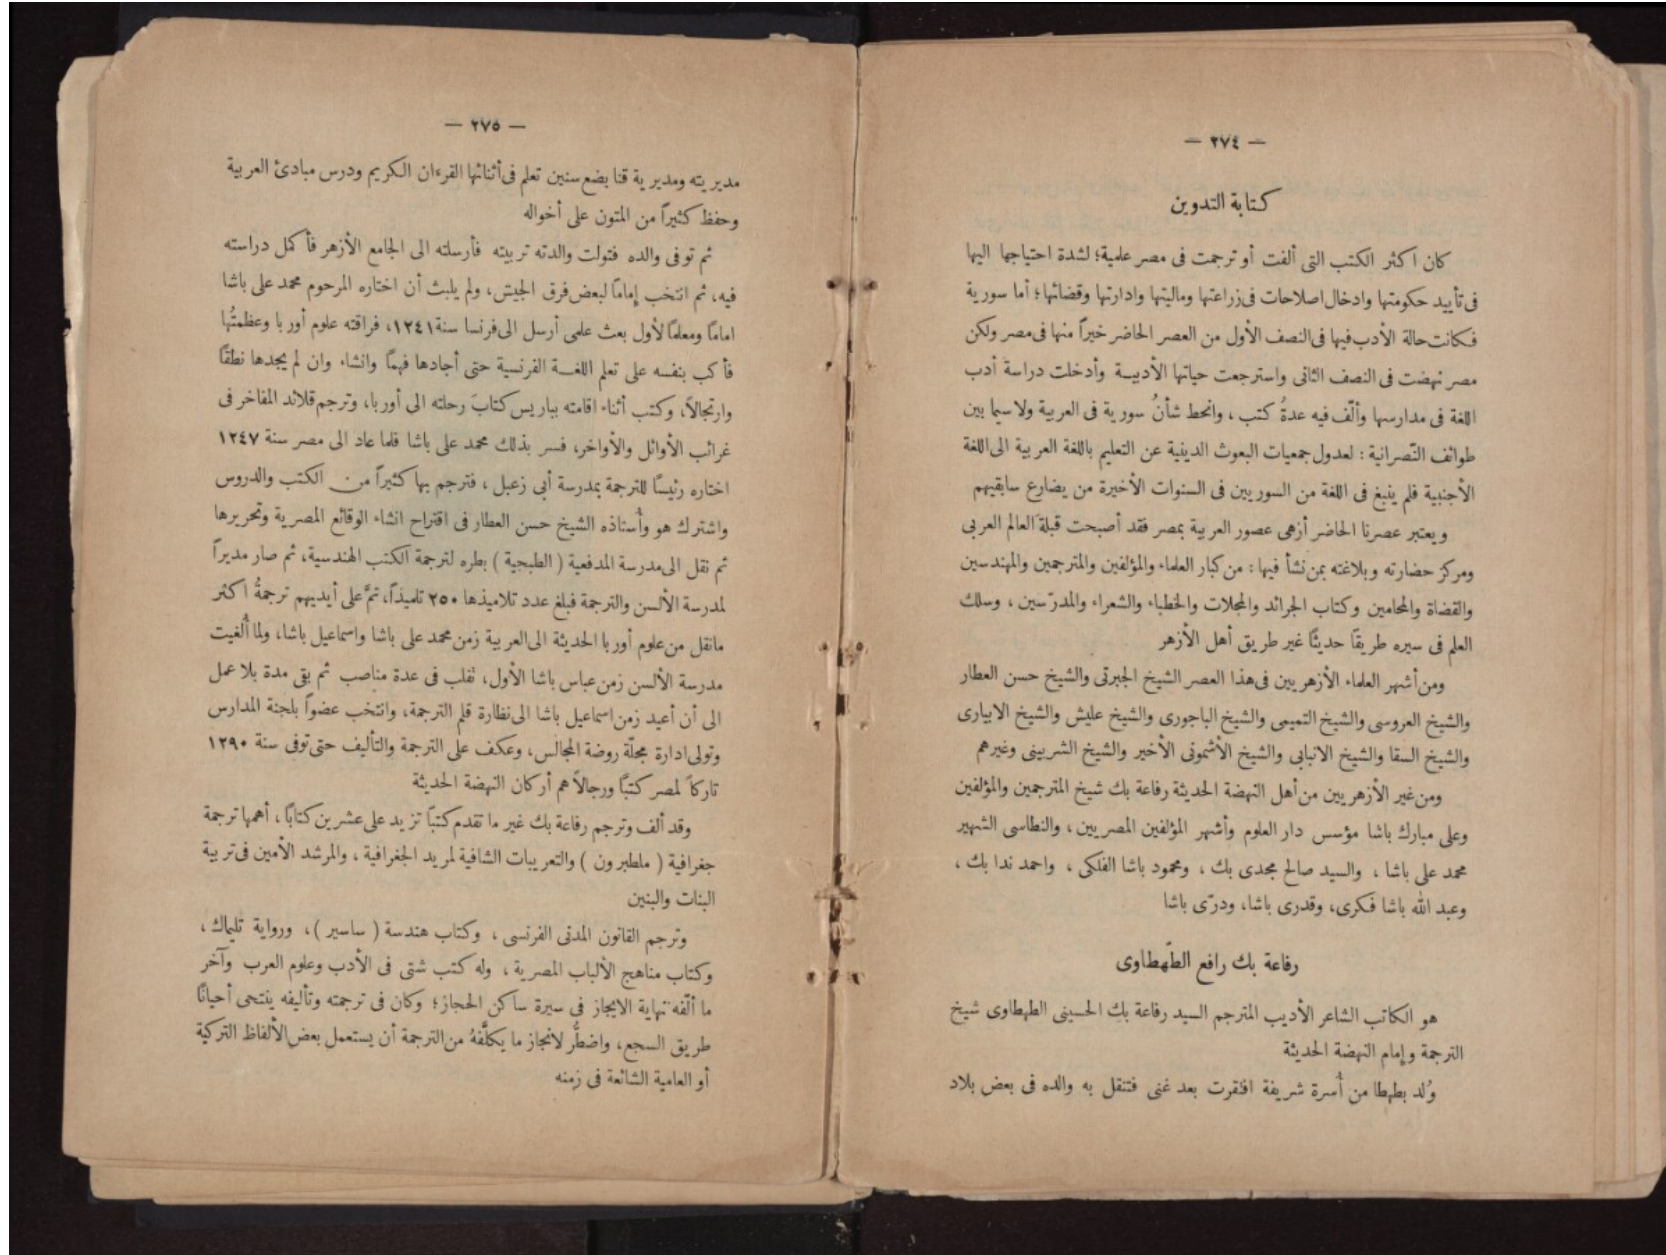 — ٢٧٤ —
كتابة التدوين
كان اكثر الكتب التى ألفت أو ترجمت فى مصر علمية؛ لشدة احتياجها اليها
فى تأييد حكومتها وادخال اصلاحات فى زراعتها وماليتها وادارتها وقضائها؛ أما سورية
فكانت حالة الأدب فيها فى النصف الأول من العصر الحاضر خيراً منها فى مصر ولكن
مصر نهضت فى النصف الثانى واسترجعت حياتها الأدبية وأدخلت دراسة أدب
اللغة فى مدارسها وألّف فيه عدةُ كتب، وانحط شأنُ سورية فى العربية ولا سيما بين
طوائف النّصرانية : لعدول جمعيات البعوث الدينية عن التعليم باللغة العربية الى اللغة
الأجنبية فلم ينبغ فى اللغة من السوريين فى السنوات الأخيرة من يضارع سابقيهم
ويعتبر عصرنا الحاضر أزهى عصور العربية بمصر فقد أصبحت قبلة العالم العربى
ومركز حضارته وبلاغته بمن نشأ فيها : من كبار العلماء والمؤلفين والمترجمين والمهندسين
والقضاة والمحامين وكتاب الجرائد والمجلات والخطباء والشعراء والمدرّسين، وسلك
العلم فى سيره طريقًا حديثًا غير طريق أهل الأزهر
ومن أشهر العلماء الأزهريين فى هذا العصر الشيخ الجبرتى والشيخ حسن العطار
والشيخ العروسى والشيخ التميمى والشيخ الباجورى والشيخ عليش والشيخ الابيارى
والشيخ السقا والشيخ الانبابى والشيخ الأشمونى الأخير والشيخ الشربينى وغيرهم
ومن غير الأزهريين من أهل النهضة الحديثة رفاعة بك شيخ المترجمين والمؤلفين
وعلى مبارك باشا مؤسس دار العلوم وأشهر المؤلفين المصريين، والنطاسى الشهير
محمد على باشا، والسيد صالح مجدى بك، ومحمود باشا الفلكى، واحمد ندا بك،
وعبد الله باشا فكرى، وقدرى باشا، ودرّى باشا
رفاعة بك رافع الطّهطاوى
هو الكاتب الشاعر الأديب المترجم السيد رفاعة بك الحسينى الطهطاوى شيخ
الترجمة وإمام النهضة الحديثة
وُلد بطهطا من أُسرة شريفة افتقرت بعد غنى فتنقل به والده فى بعض بلاد
— ٢٧٥ —
مديريته ومديرية قنا بضع سنين تعلم فى أثنائها القرءان الكريم ودرس مبادئ العربية
وحفظ كثيراً من المتون على أخواله
ثم توفى والده فتولت والدته تربيته فأرسلته الى الجامع الأزهر فأكمل دراسته
فيه، ثم انتخب إمامًا لبعض فرق الجيش، ولم يلبث أن اختاره المرحوم محمد على باشا
امامًا ومعلمًا لأول بعث علمى أرسل الى فرنسا سنة ١٢٤١، فراقته علوم أوربا وعظمتُها
فأكب بنفسه على تعلم اللغة الفرنسية حتى أجادها فهمًا وانشاء وان لم يجدها نطقًا
وارتجالاً، وكتب أثناء اقامته بباريس كتابَ رحلته الى أوربا، وترجم قلائد المفاخر فى
غرائب الأوائل والأواخر، فسر بذلك محمد على باشا فلما عاد الى مصر سنة ١٢٤٧
اختاره رئيسًا للترجمة بمدرسة أبى زعبل، فترجم بها كثيراً من الكتب والدروس
واشترك هو وأستاذه الشيخ حسن العطار فى اقتراح انشاء الوقائع المصرية وتحريرها
ثم نقل الى مدرسة المدفعية ( الطبجية ) بطره لترجمة الكتب الهندسية، ثم صار مديراً
لمدرسة الألسن والترجمة فبلغ عدد تلاميذها ٢٥٠ تلميذاً، تمَّ على أيديهم ترجمةُ اكثر
مانقل من علوم أوربا الحديثة الى العربية زمن محمد على باشا واسماعيل باشا، ولما أُلغيت
مدرسة الألسن زمن عباس باشا الأول، تقلب فى عدة مناصب ثم بقى مدة بلا عمل
الى أن أعيد زمن اسماعيل باشا الى نظارة قلم الترجمة، وانتخب عضواً بلجنة المدارس
وتولى ادارة مجلّة روضة المجالس، وعكف على الترجمة والتأليف حتى توفى سنة ١٢٩٠
تاركاً لمصر كتبًا ورجالاً هم أركان النهضة الحديثة
وقد ألف وترجم رفاعة بك غير ما تقدم كتبًا تزيد على عشرين كتابًا، أهمها ترجمة
جغرافية ( ملطبرون ) والتعريبات الشافية لمريد الجغرافية، والمرشد الأمين فى تربية
البنات والبنين
وترجم القانون المدنى الفرنسى، وكتاب هندسة ( ساسير )، ورواية تليماك،
وكتاب مناهج الألباب المصرية، وله كتب شتى فى الأدب وعلوم العرب وآخر
ما ألّفه نهاية الايجاز فى سيرة ساكن الحجاز؛ وكان فى ترجمته وتأليفه ينتحى أحيانًا
طريق السجع، واضطُّر لانجاز ما يكلَّفهُ من الترجمة أن يستعمل بعض الألفاظ التركية
أو العامية الشائعة فى زمنه